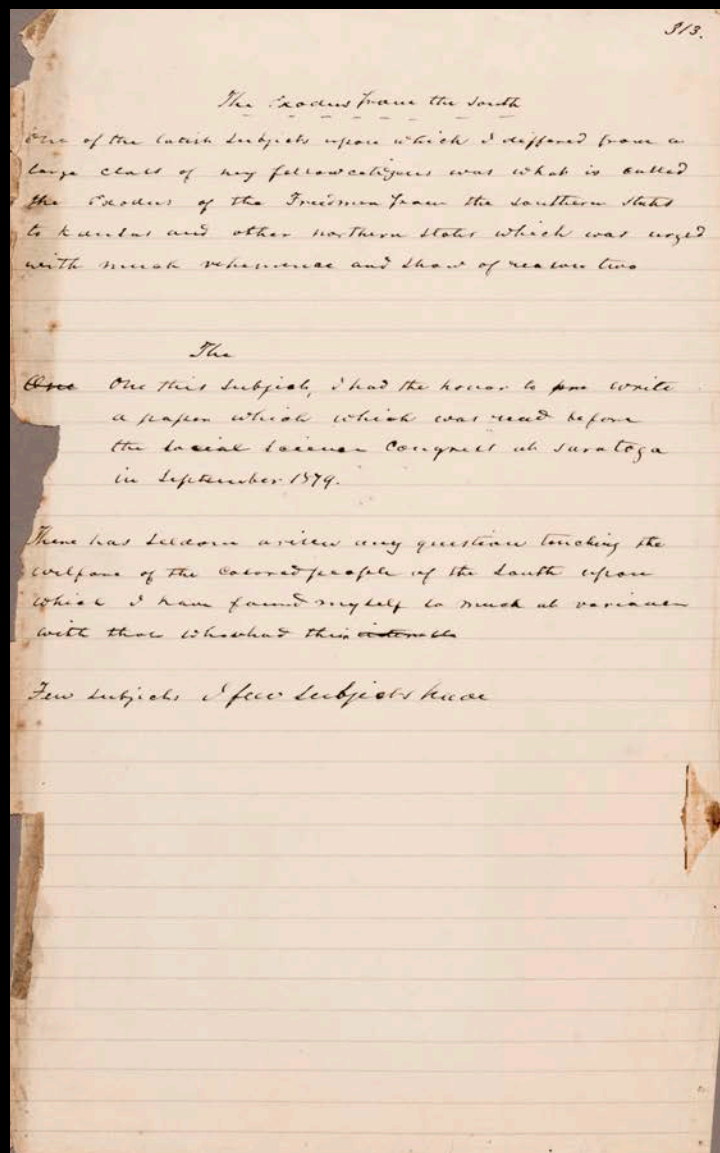 313.
The Exodus from the South
One of the latish subjects upon which I differed from a
large class of my fellow citizens was what is called
the Exodus of the Freedmen from the southern states
to Kansas and other northern states which was urged
with much vehemence and show of reason two
The
One One this subject, I had the honor to pre write
a paper which which was read before
the Social Science Congress at Saratoga
in September 1879.
There has seldom arisen any question touching the
welfare of the colored people of the South upon
which I have found myself so much at variance
with those who had their interests
Few subjects I few subjects have